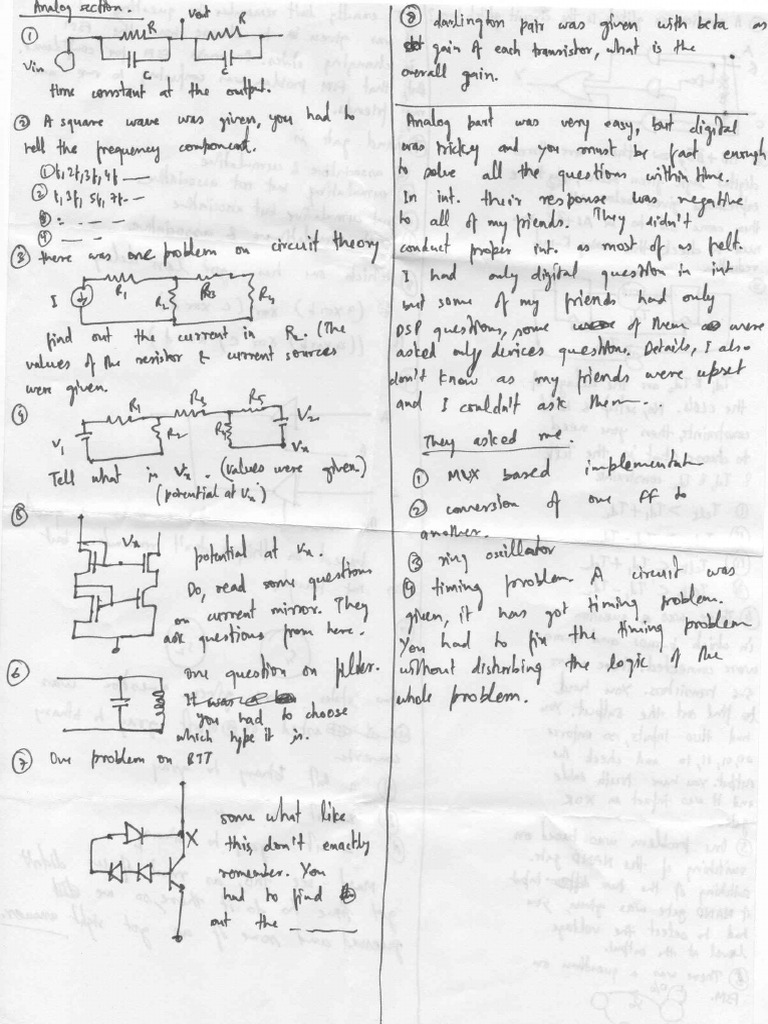 Analog section.
①
R
Vout
R
Vin
C
time constant at the output.
② A square wave was given, you had to
tell the frequency component.
① f, 2f, 3f, 4f
② f, 3f, 5f, 7f
③
④
③ there was one problem on circuit theory
I
R1
R2
R3
R4
find out the current in R2. (The
values of the resistor & current sources
were given.
④
R1
R3
R5
V1
R2
R4
V2
Vx
Tell what is Vx. (values were given)
(potential at Vx)
⑤
Vx
potential at Vx.
Do, read some questions
on current mirror. They
ask questions from here.
⑥
one question on filter.
It was
you had to choose
which type it is.
⑦ One problem on BJT
X
some what like
this, don't exactly
remember. You
had to find
out the
⑧ darlington pair was given with beta as
gain of each transistor, what is the
overall gain.
Analog part was very easy, but digital
was tricky and you must be fast enough
to solve all the questions within time.
In int. their response was negative
to all of my friends. They didn't
conduct proper int. as most of us felt.
I had only digital question in int
but some of my friends had only
DSP questions, some of them were
asked only devices question. Details, I also
don't know as my friends were upset
and I couldn't ask them.
They asked me.
① MUX based implementatn
② conversion of one FF to
another.
③ ring oscillator
④ timing problem. A circuit was
given, it has got timing problem.
You had to fix the timing problem
without disturbing the logic of the
whole problem.